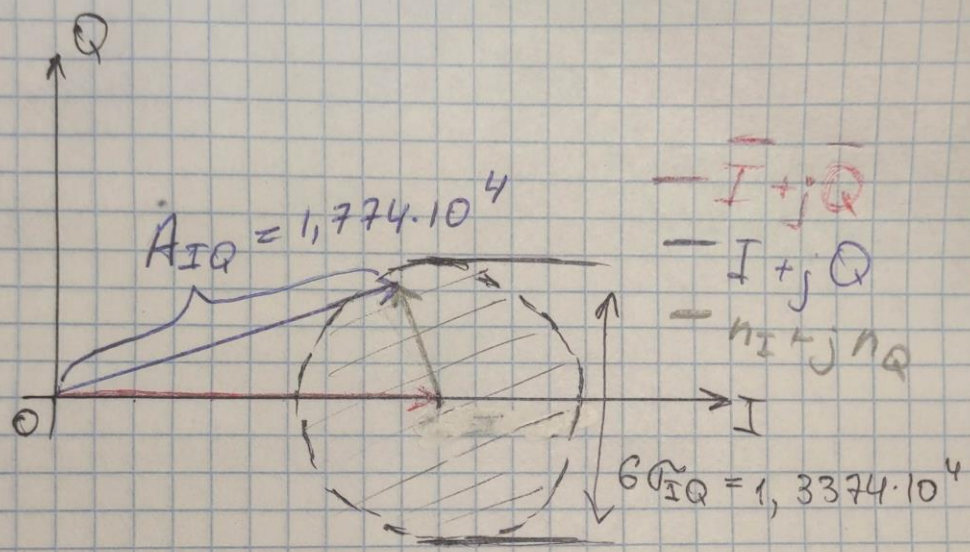 Q
— I̅ + jQ̅
A_IQ = 1,774·10⁴
— I + jQ
— n_I + j n_Q
0
I
6σ_IQ = 1,3374·10⁴